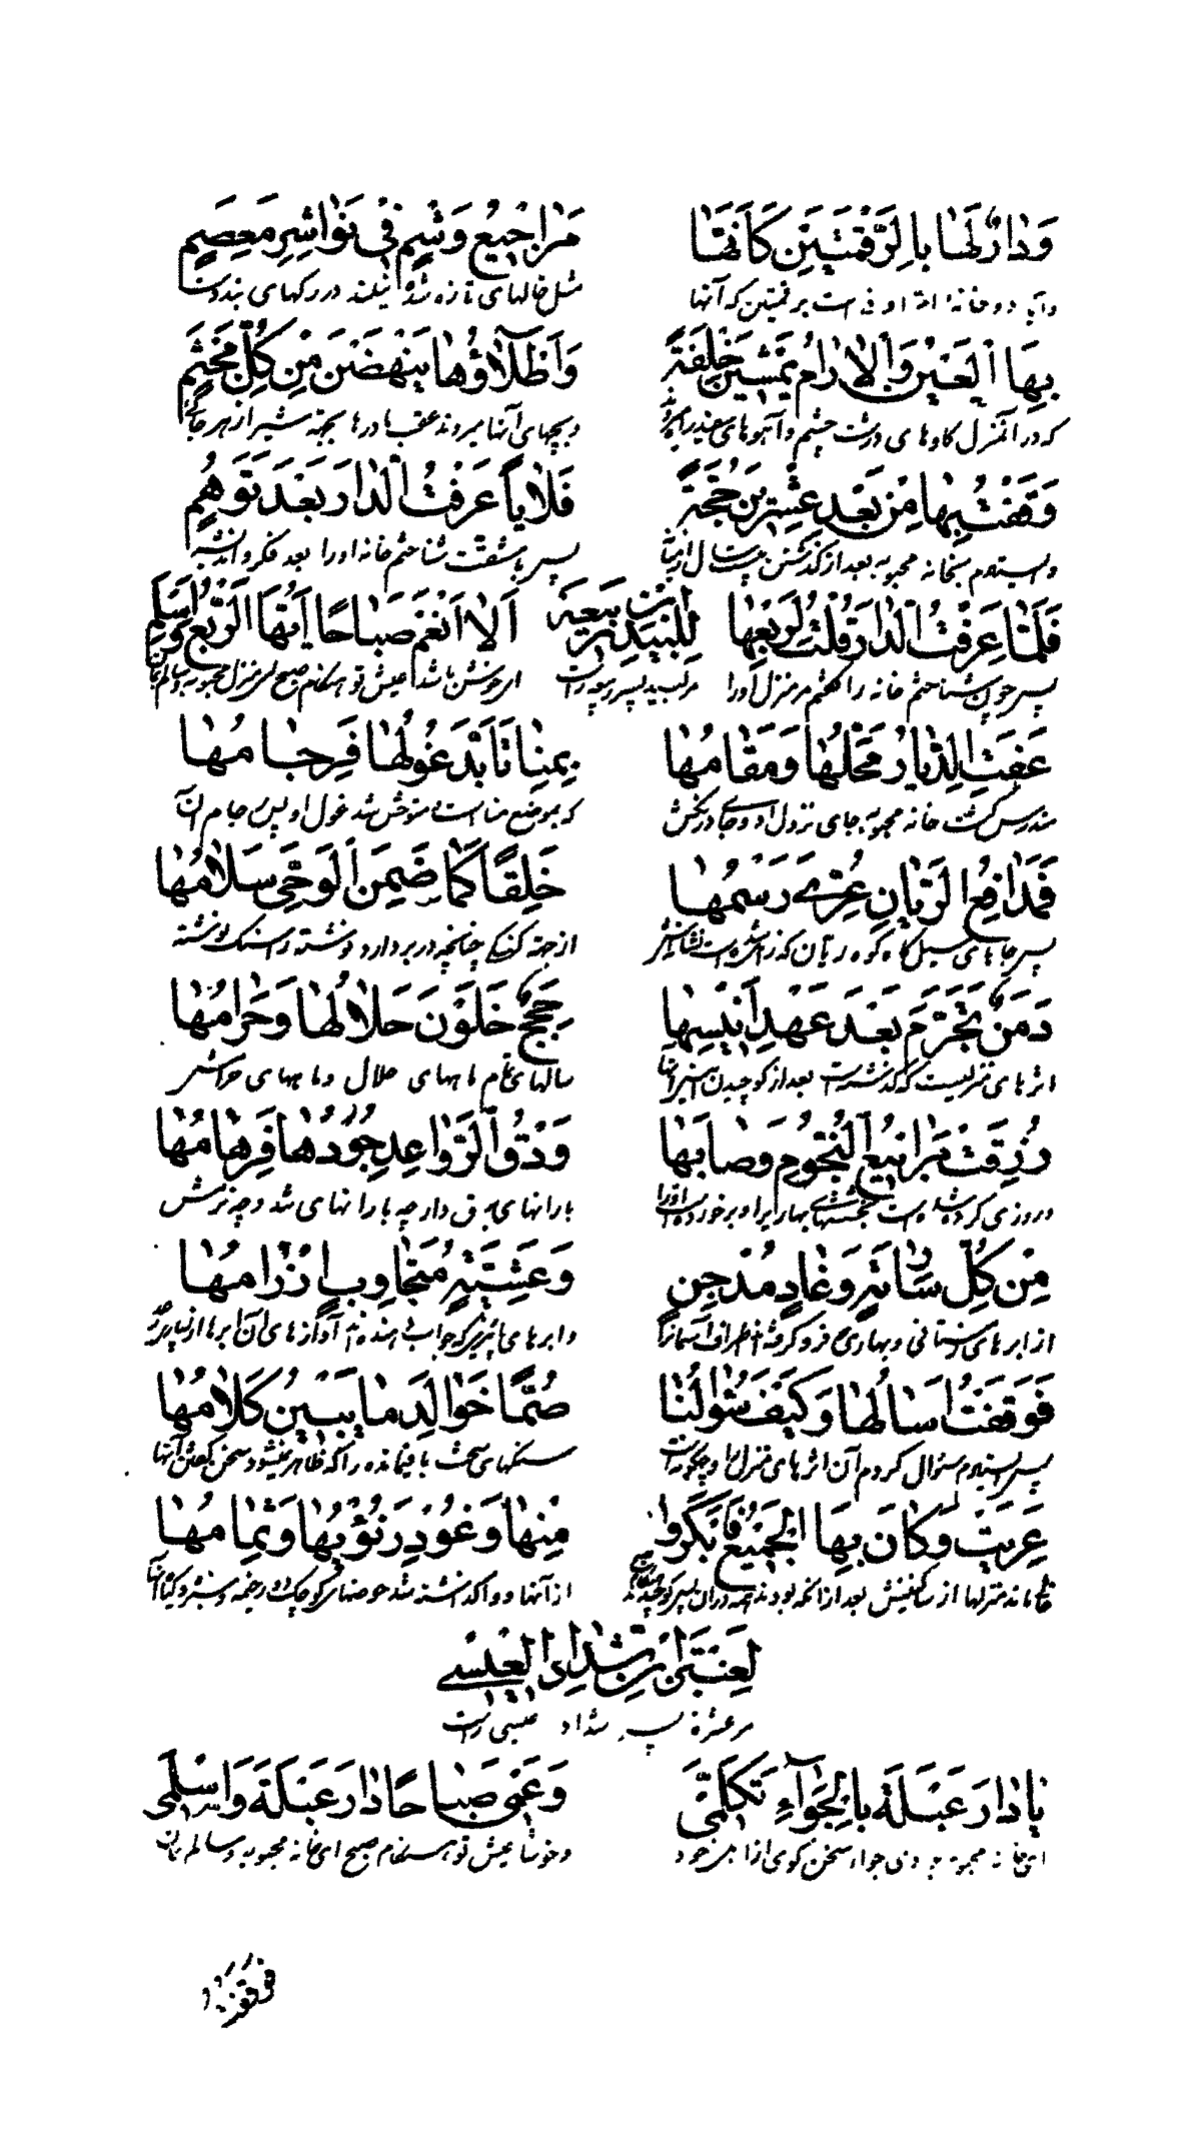 وَدَارٌ لَهَا بِالرَّقْمَتَيْنِ كَأَنَّهَا مَرَاجِيعُ وَشْمٍ فِي نَوَاشِرِ مِعْصَمِ
که آنها مثل خالهای تازه شده در رگهای بند دست
بِهَا الْعَيْنُ وَالْارَامُ يَمْشِينَ خِلْفَةً وَأَطْلَاؤُهَا يَنْهَضْنَ مِنْ كُلِّ مَجْثَمِ
که در آن منزل گاوهای درشت چشم و آهوهای سفید و بچهای آنها میروند عقب مادرها بجهة شیر از هر جای
وَقَفْتُ بِهَا مِنْ بَعْدِ عِشْرِينَ حُجَّةً فَلَأْيًا عَرَفْتُ الدَّارَ بَعْدَ تَوَهُّمِ
و ایستادم بخانه محبوبه بعد از گذشتن بیست سال پس با مشقت شناختم خانه او را بعد فکر و اندیشه
فَلَمَّا عَرَفْتُ الدَّارَ قُلْتُ لِرَبْعِهَا لِلَبِيدِ بْنِ رَبِيعَة أَلَا انْعَمْ صَبَاحًا أَيُّهَا الرَّبْعُ وَاسْلَمِ
پس چون شناختم خانه را گفتم مر منزل او را مر لبید پسر ربیعه راست خوش باشد عیش تو هنگام صبح ای منزل محبوبه و سالم
عَفَتِ الدِّيَارُ مَحَلُّهَا وَمَقَامُهَا بِمِنًا تَأَبَّدَ غَوْلُهَا فَرِجَامُهَا
مندرس گشت خانه محبوبه جای نزول او و جای درنگش که بموضع منا است متوحش شد غول او پس رجام آن
فَمَدَافِعُ الرَّيَّانِ عُرِّيَ رَسْمُهَا خَلِقًا كَمَا ضَمِنَ الْوُحِيَّ سِلَامُهَا
پس جاهای سیل گاه کوه ریان از جهة کهنگی چنانچه در بر دارد نوشته را سنگ نوشته
دِمَنٌ تَجَرَّمَ بَعْدَ عَهْدِ أَنِيسِهَا حِجَجٌ خَلَوْنَ حَلَالُهَا وَحَرَامُهَا
اثرهای منزلیست که گذشته است بعد از کوچیدن سالهای تمام ماههای حلال و ماههای حرامش
رُزِقَتْ مَرَابِيعَ النُّجُومِ وَصَابَهَا وَدْقُ الرَّوَاعِدِ جُوْدُهَا فَرِهَامُهَا
و روزی کرده شده است بارانهای برق دار چه بارانهای تند و چه نرمش
مِنْ كُلِّ سَارِيَةٍ وَغَادٍ مُدْجِنٍ وَعَشِيَّةٍ مُتَجَاوِبٍ إِرْزَامُهَا
از ابرهای زمستانی و بهاری فرو گرفته اطراف آسمان را و ابرهای جواب دهنده آوازهای آن ابرها
فَوَقَفْتُ أَسْأَلُهَا وَكَيْفَ سُؤَالُنَا صُمًّا خَوَالِدَ مَا يَبِينُ كَلَامُهَا
پس ایستادم سئوال کردم آن اثرهای منزل را و چگونه است سنگهای سخت باقیمانده را که ظاهر نمیشود سخن گفتن آنها
عَرِيَتْ وَكَانَ بِهَا الْجَمِيعُ فَأَبْكَرُوا مِنْهَا وَغُودِرَ نُؤْيُهَا وَثُمَامُهَا
منزلها از ساکنینش بعد از آنکه بودند همه در آن از آنها و واگذاشته شد
لِعَنْتَرَةَ بْنِ شَدَّادِ الْعَبْسِيِّ
مر عنترة پسر شداد عبسی راست
يَا دَارَ عَبْلَةَ بِالْجَوَاءِ تَكَلَّمِي وَعَمِي صَبَاحًا دَارَ عَبْلَةَ وَاسْلَمِي
ای خانه محبوبه در وادی جواء سخن گوی از اهل خود و خوش باد عیش تو هنگام صبح ای خانه محبوبه و سالم بمان